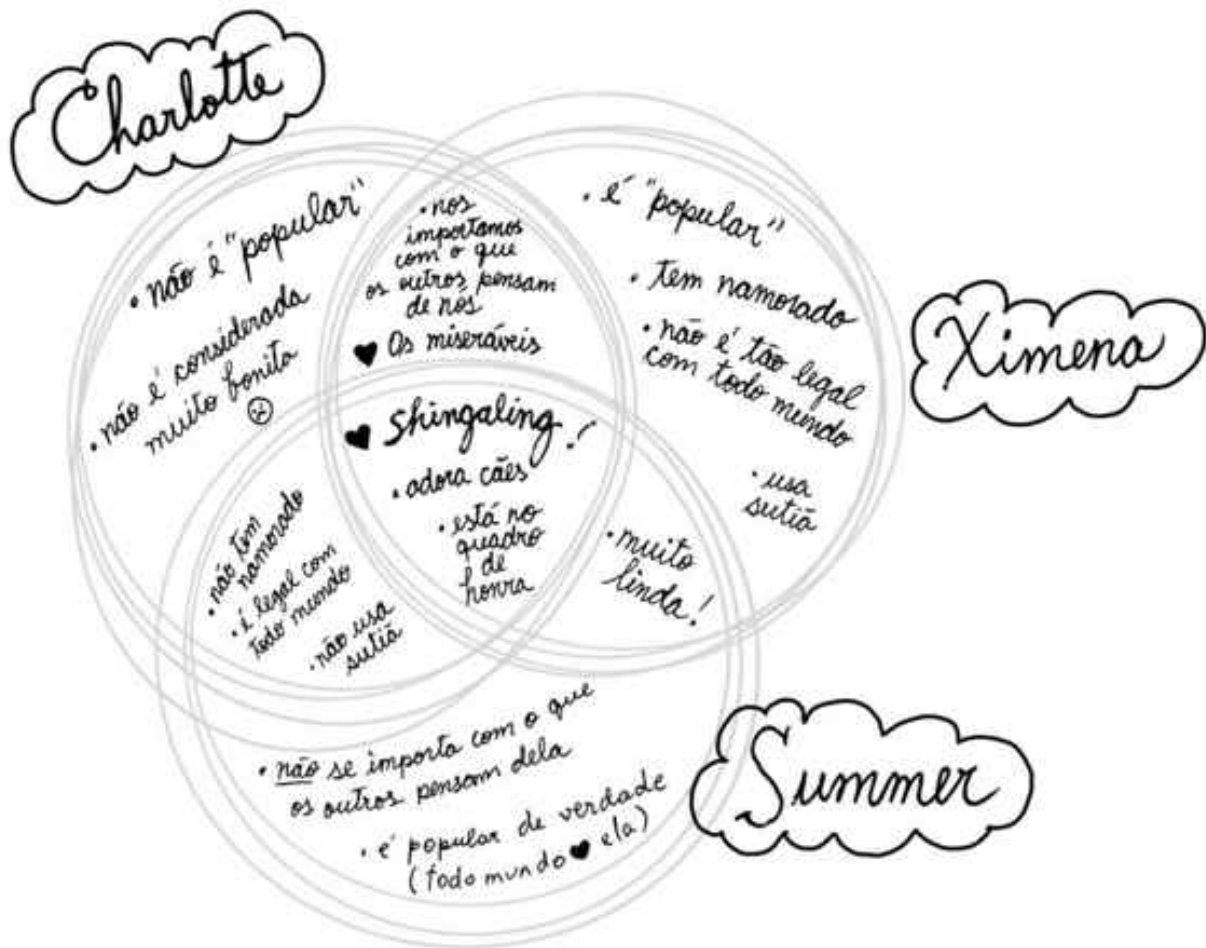 Charlotte
• não é "popular"
• não é considerada
muito bonita
• nos
importamos
com o que
os outros pensam
de nós
♥ Os miseráveis
• é "popular"
• tem namorado
• não é tão legal
com todo mundo
• usa
sutiã
Ximena
♥ Shingaling!
• adora cães
• está no
quadro
de
honra
• não tem
namorado
• é legal com
todo mundo
• não usa
sutiã
• muito
linda!
• não se importa com o que
os outros pensam dela
• é popular de verdade
(todo mundo ♥ ela)
Summer